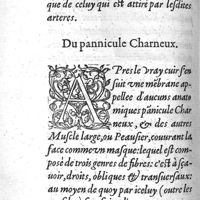 que de celuy qui est attiré par lesdites
arteres.
Du pannicule Charneux.
APres le vray cuir s'en
suit vne mēbrane ap-
pellee d'aucuns anato
miques pānicule Char
neux, & des autres
Muscle large, ou Peaussier, couurant la
face comme vn masque: lequel est com
posé de trois genres de fibres: c'est à sça-
uoir, droits, obliques & transuersaux:
au moyen de quoy par iceluy (outre les